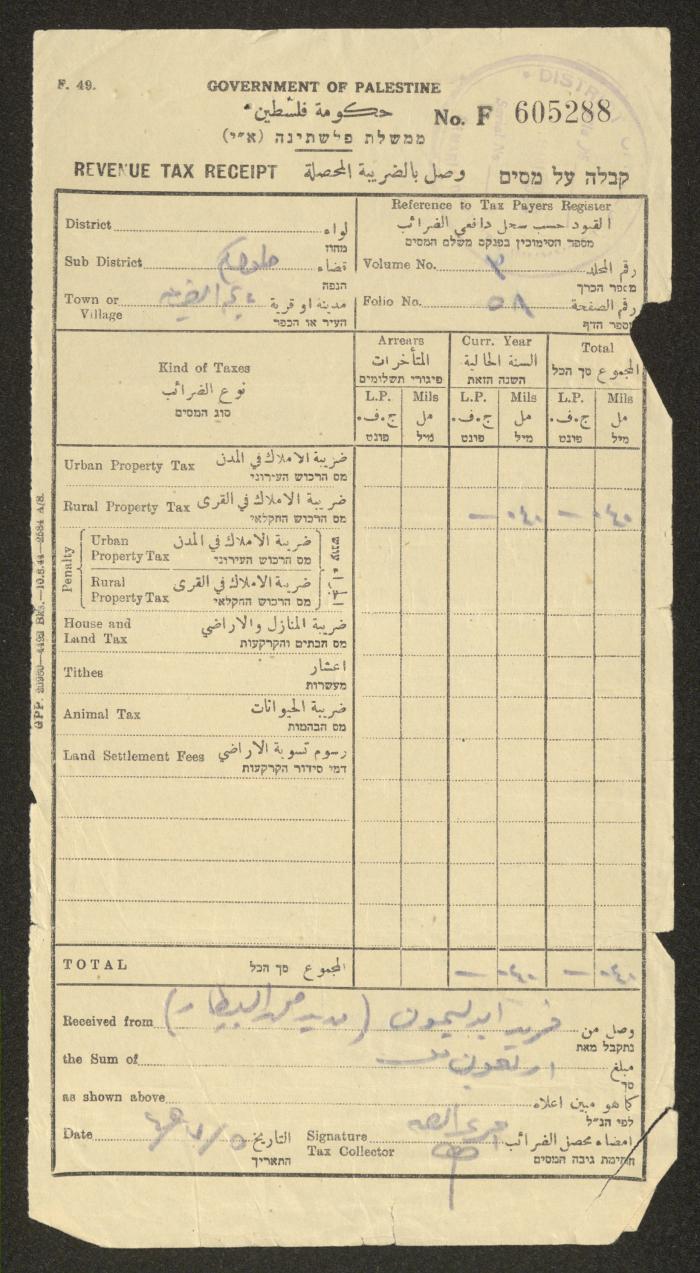 F. 49.
GOVERNMENT OF PALESTINE
حكومة فلسطين
No. F 605288
ממשלת פלשתינה (א״י)
REVENUE TAX RECEIPT وصل بالضريبة المحصلة קבלה על מסים
DISTRICT
Reference to Tax Payers Register
القيود حسب سجل دافعي الضرائب
מספר הסימוכין בפנקס משלם המסים
District لواء
מחוז
Sub District طولكرم قضاء
הנפה
Town or Village مدينة او قرية
העיר או הכפר
Volume No. ٣ رقم المجلد
מספר הכרך
Folio No. ٥٨ رقم الصفحة
מספר הדף
Kind of Taxes
نوع الضرائب
סוג המסים
Arrears
المتأخرات
פיגורי תשלומים
Curr. Year
السنة الحالية
השנה הזאת
Total
المجموع סך הכל
L.P. Mils L.P. Mils L.P. Mils
ج.ف. مل ج.ف. مل ج.ف. مل
פונט מיל פונט מיל פונט מיל
Urban Property Tax ضريبة الاملاك في المدن
מס הרכוש העירוני
Rural Property Tax ضريبة الاملاك في القرى
מס הרכוש החקלאי
— ٠٤٠ — ٠٤٠
Penalty
Urban Property Tax ضريبة الاملاك في المدن
מס הרכוש העירוני
Rural Property Tax ضريبة الاملاك في القرى
מס הרכוש החקלאי
עונש
House and Land Tax ضريبة المنازل والاراضي
מס הבתים והקרקעות
Tithes اعشار
מעשרות
Animal Tax ضريبة الحيوانات
מס הבהמות
Land Settlement Fees رسوم تسوية الاراضي
דמי סידור הקרקעות
TOTAL المجموع סך הכל
— ٠٤٠ — ٠٤٠
Received from فريد وصل من
נתקבל מאת
the Sum of اربعون مل مبلغ
סך
as shown above كما هو مبين اعلاه
לפי הנ״ל
Date التاريخ
התאריך
Signature Tax Collector امضاء محصل الضرائب
חתימת גובה המסים